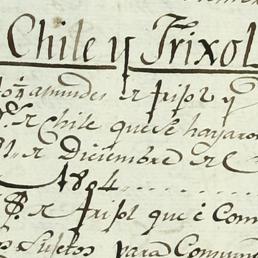 Chile y Frixol
de frisol y
de Chile que se hayaron
de Diciembre de
1804
de frisol que è Com
Sujetos para Comun